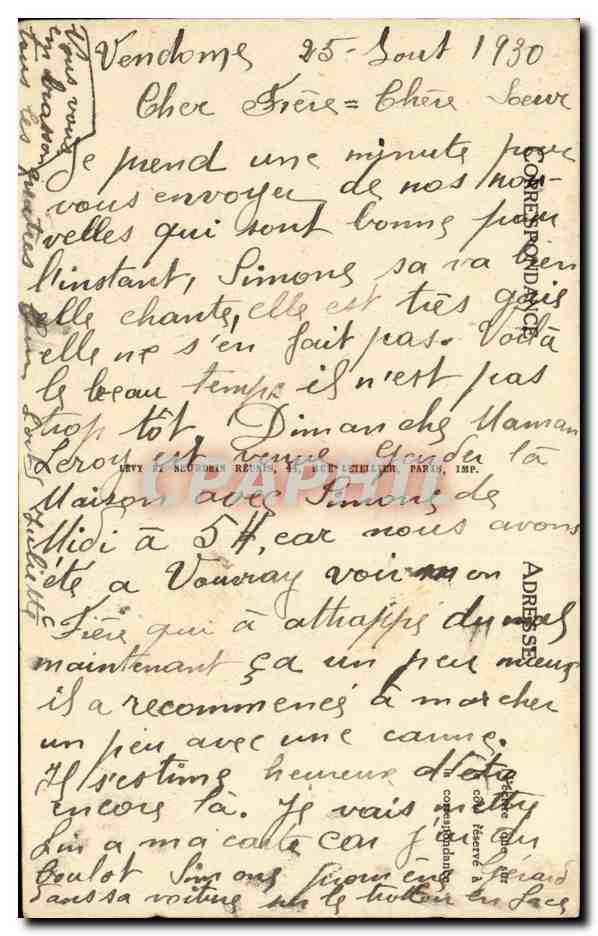 Vendome 25 - Aout 1930
Cher Frère = Chère Soeur
Je prend une minute pour
vous envoyer de nos nou-
velles qui sont bonne pour
l'instant, Simone sa va bien
elle chante, elle est très gaie
elle ne s'en fait pas. Voilà
le beau temps il n'est pas
trop tôt Dimanche Maman
Leroy est venue garder là
Maison avec Simone de
Midi à 5H, car nous avons
été a Vouvray voir mon
Frère qui à attrappé du mal
maintenant ça un peu mieux
il a recommencé à marcher
un peu avec une canne.
Il s'estime heureux d'être
encore là. Je vais mettre
fin a ma carte car j'ai du
boulot Simone promène Gérard
dans sa voiture sur le trottoir en face
Vous vous
embrasson
tous les quatres
Louis Juliette
CORRESPONDANCE
ADRESSE
LEVY ET NEURDEIN REUNIS, 44, RUE LETELLIER, PARIS, IMP.
CPARAMA